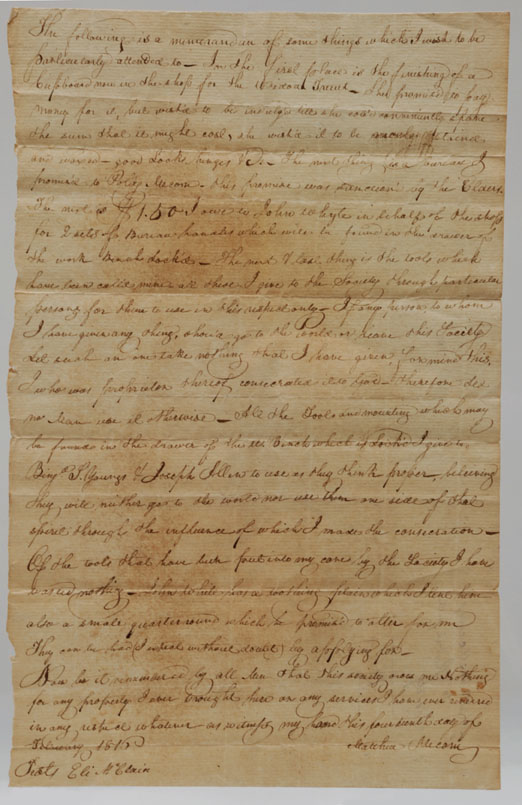 The following is a memorandum of some things which I wish to be
particularly attended to - In the first place is the finishing of a
Cupboard now in the shop for the She promised to pay
money for it, but wish'd to be till she could conveniently
the sum that it might cost, she wish'd it to be
and - good Locks hinges &c. - The next thing is a bureau I
promis'd to Polly Mecom - this promise was by the Elders
The next is $1.50 I owe to John Whyte in behalf of the shop
for 2 setts of Bureau handles which will be found in the drawer of
the work Bench Lock'd - The next & last thing is the tools which
have been call'd mine all these I give to the Society through particular
persons for them to use in this respect only - If any person to whom
I have given any thing, should go to the World or leave this Society
Let such an one take nothing that I have given, for mind this,
I who was proprietor thereof consecrated it to God - therefore let
no Man use it otherwise - All the Tools and mounting which may
be found in the drawer of the Bench which is Lock'd I give to
Benjn S. Youngs & Joseph Allen to use as they think proper, believing
they will neither go to the world nor use them one side of that
spirit through the influence of which I make the consecration -
Of the tools that have been put into my care by the Society I have
nothing - John White has a toothing plain which I lent him
also a small quarter round which he promised to alter for me
They can be had (I without doubt) by applying for -
Now be it remembered by all Men that this society owes me Nothing
for any property I ever brought here or any services I have ever
in any respect whatever - as witness my hand this fourth day of
February
Matthew Mecom
Eli McClain